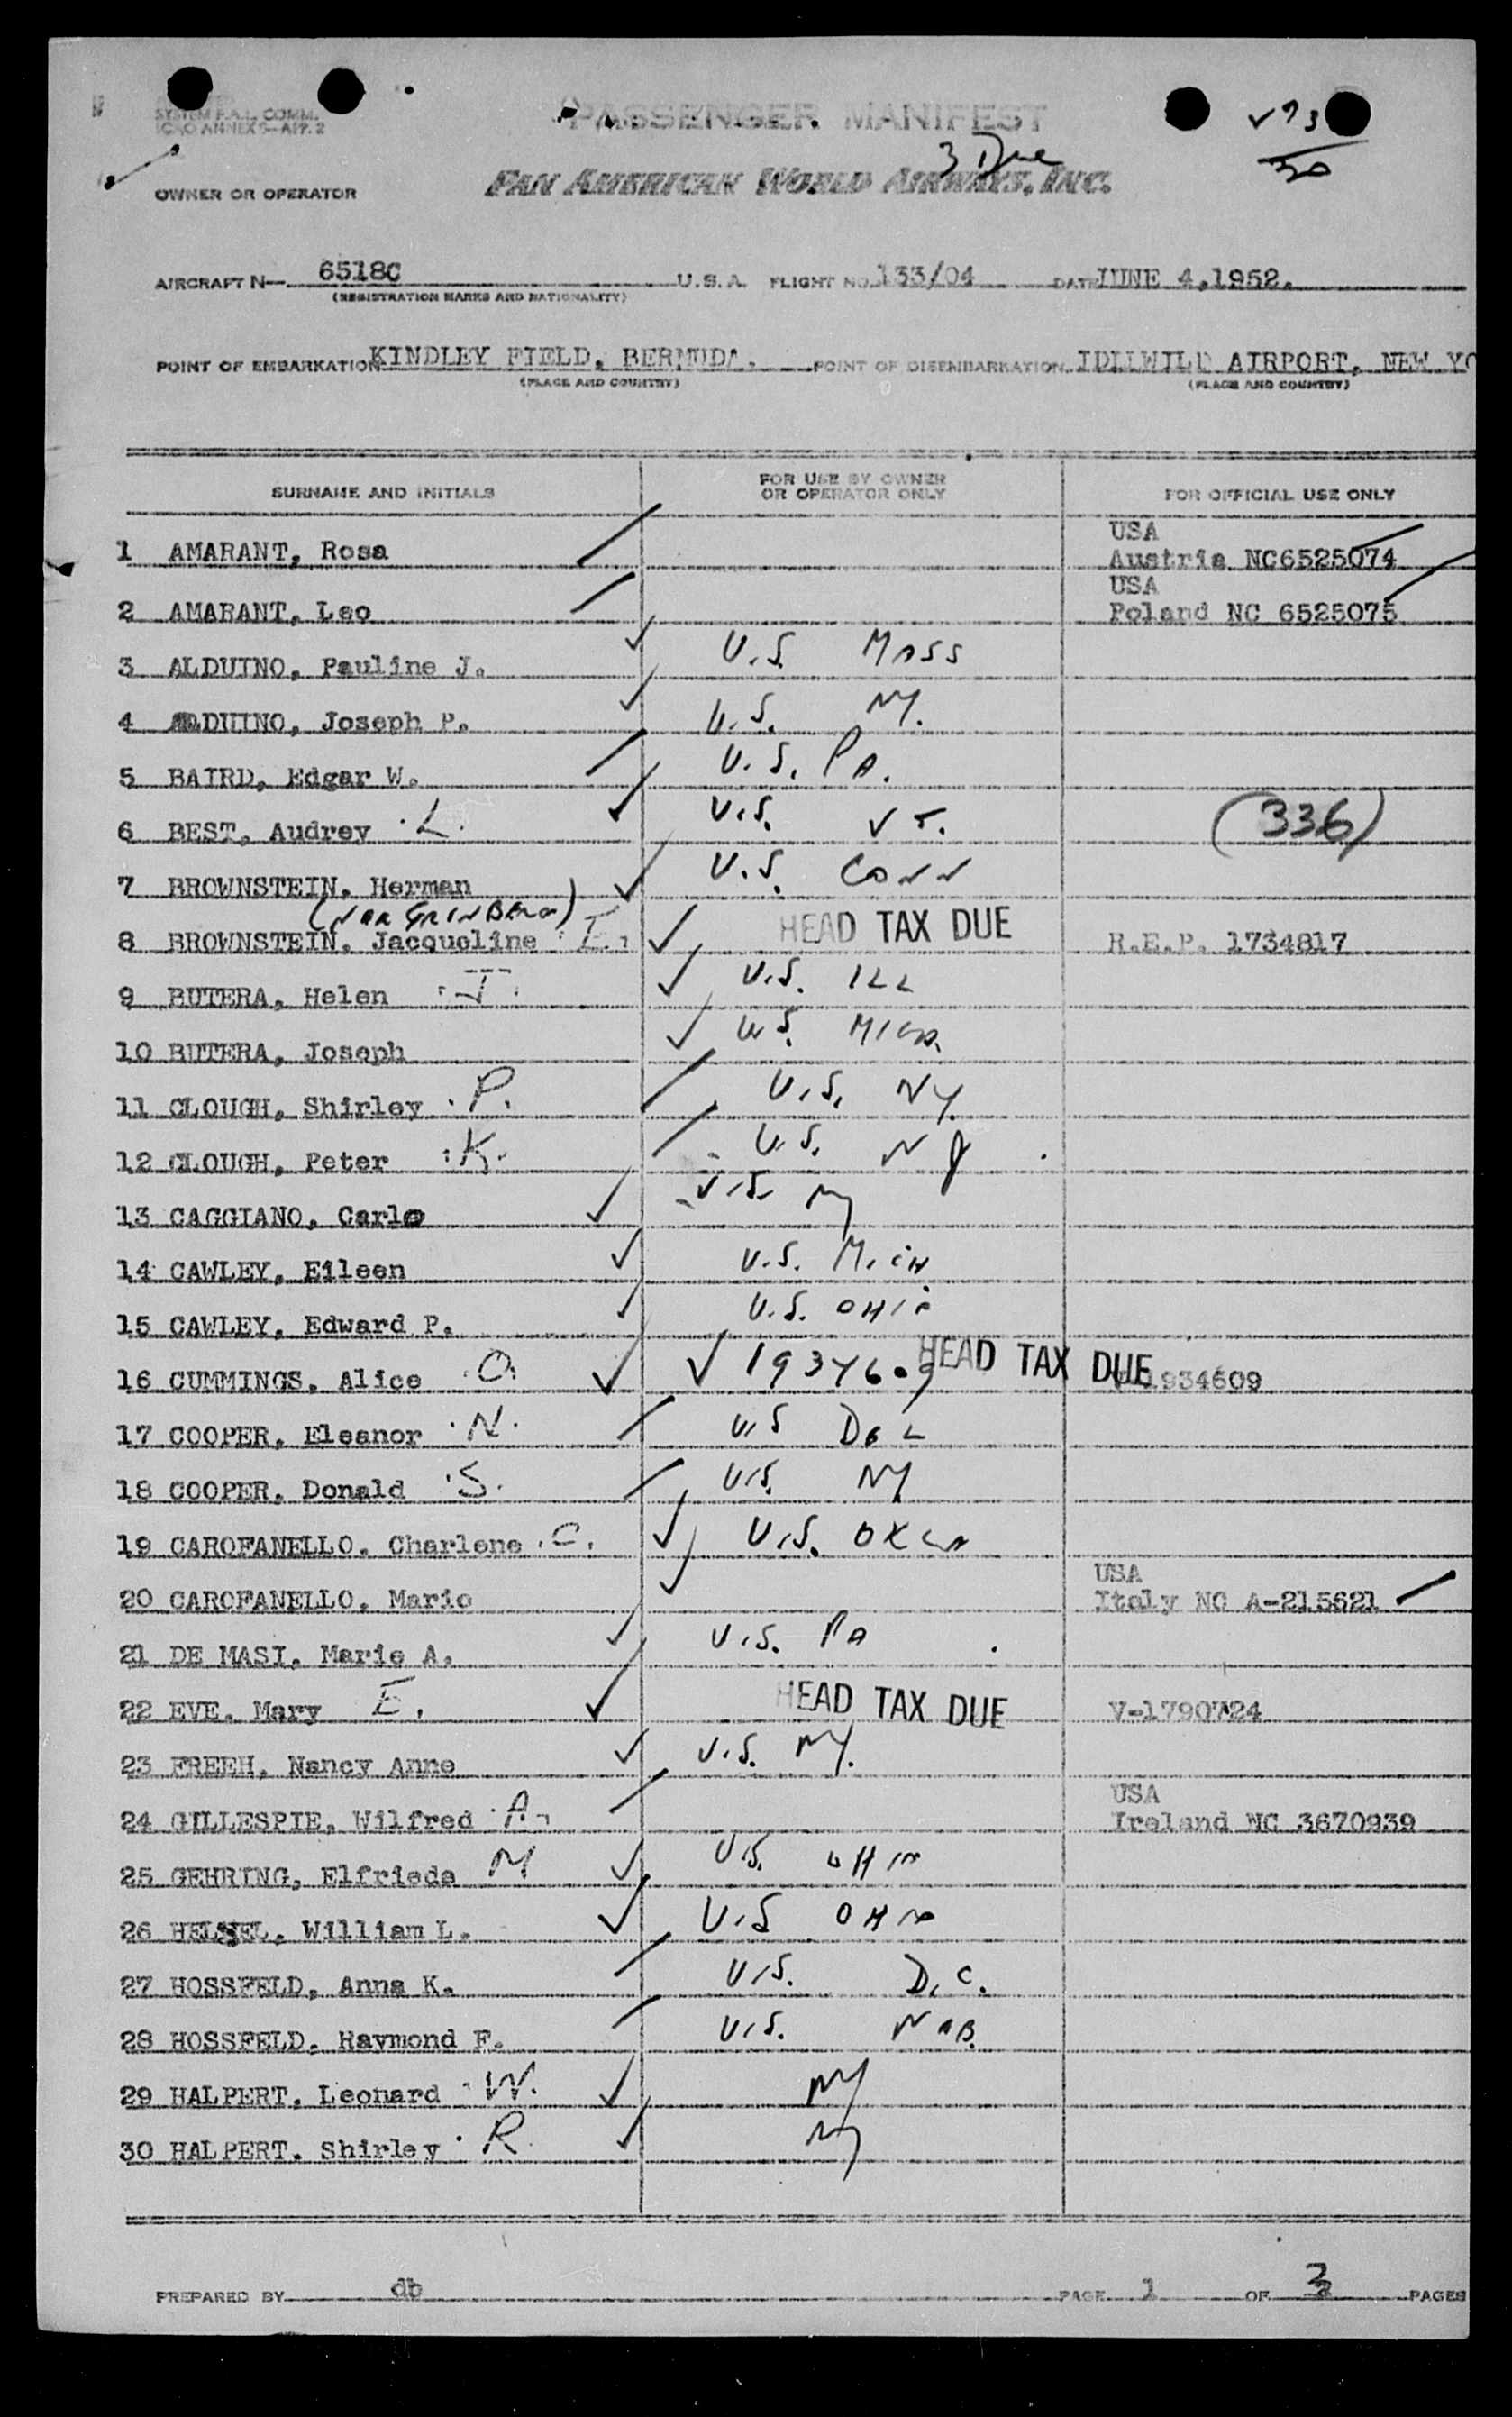 SYSTEM F.A.L. COMM.
ICAO ANNEX 9-APP. 2
PASSENGER MANIFEST
3 Due
30
OWNER OR OPERATOR PAN AMERICAN WORLD AIRWAYS, INC.
AIRCRAFT N— 6518C U.S.A. FLIGHT NO. 133/04 DATE JUNE 4,1952.
(REGISTRATION MARKS AND NATIONALITY)
POINT OF EMBARKATION KINDLEY FIELD, BERMUDA. POINT OF DISEMBARKATION IDLEWILD AIRPORT, NEW YO
(PLACE AND COUNTRY) (PLACE AND COUNTRY)
SURNAME AND INITIALS FOR USE BY OWNER OR OPERATOR ONLY FOR OFFICIAL USE ONLY
USA
1 AMARANT, Rosa Austria NC6525074
USA
2 AMARANT, Leo Poland NC 6525075
3 ALDUINO, Pauline J. U.S. MASS
4 ALDUINO, Joseph P. U.S. NY.
5 BAIRD, Edgar W. U.S. PA.
6 BEST, Audrey L. U.S. VT. (336)
7 BROWNSTEIN, Herman U.S. CONN
8 BROWNSTEIN, Jacqueline E. HEAD TAX DUE R.E.P. 1734817
9 BUTERA, Helen J. U.S. ILL
10 BUTERA, Joseph U.S. MICH.
11 CLOUGH, Shirley P. U.S. NY.
12 CLOUGH, Peter K. U.S. NJ
13 CAGGIANO, Carlo U.S. NY
14 CAWLEY, Eileen U.S. MICH.
15 CAWLEY, Edward P. U.S. OHIO
16 CUMMINGS, Alice O. 1934609 HEAD TAX DUE 1934609
17 COOPER, Eleanor N. U.S DEL
18 COOPER, Donald S. U.S. NY
19 CAROFANELLO, Charlene C. U.S. OKLA
USA
20 CAROFANELLO, Mario Italy NC A-215621
21 DE MASI, Marie A. U.S. PA
22 EVE, Mary E. HEAD TAX DUE V-1790724
23 FREEH, Nancy Anne U.S. NY.
USA
24 GILLESPIE, Wilfred A. Ireland NC 3670939
25 GEHRING, Elfrieda M U.S. OHIO
26 William L. U.S OHIO
27 HOSSFELD, Anna K. U.S. D.C.
28 HOSSFELD, Raymond F. U.S. NEB.
29 HALPERT, Leonard W. NY
30 HALPERT, Shirley R. NY
PREPARED BY db PAGE 1 OF 3 PAGES